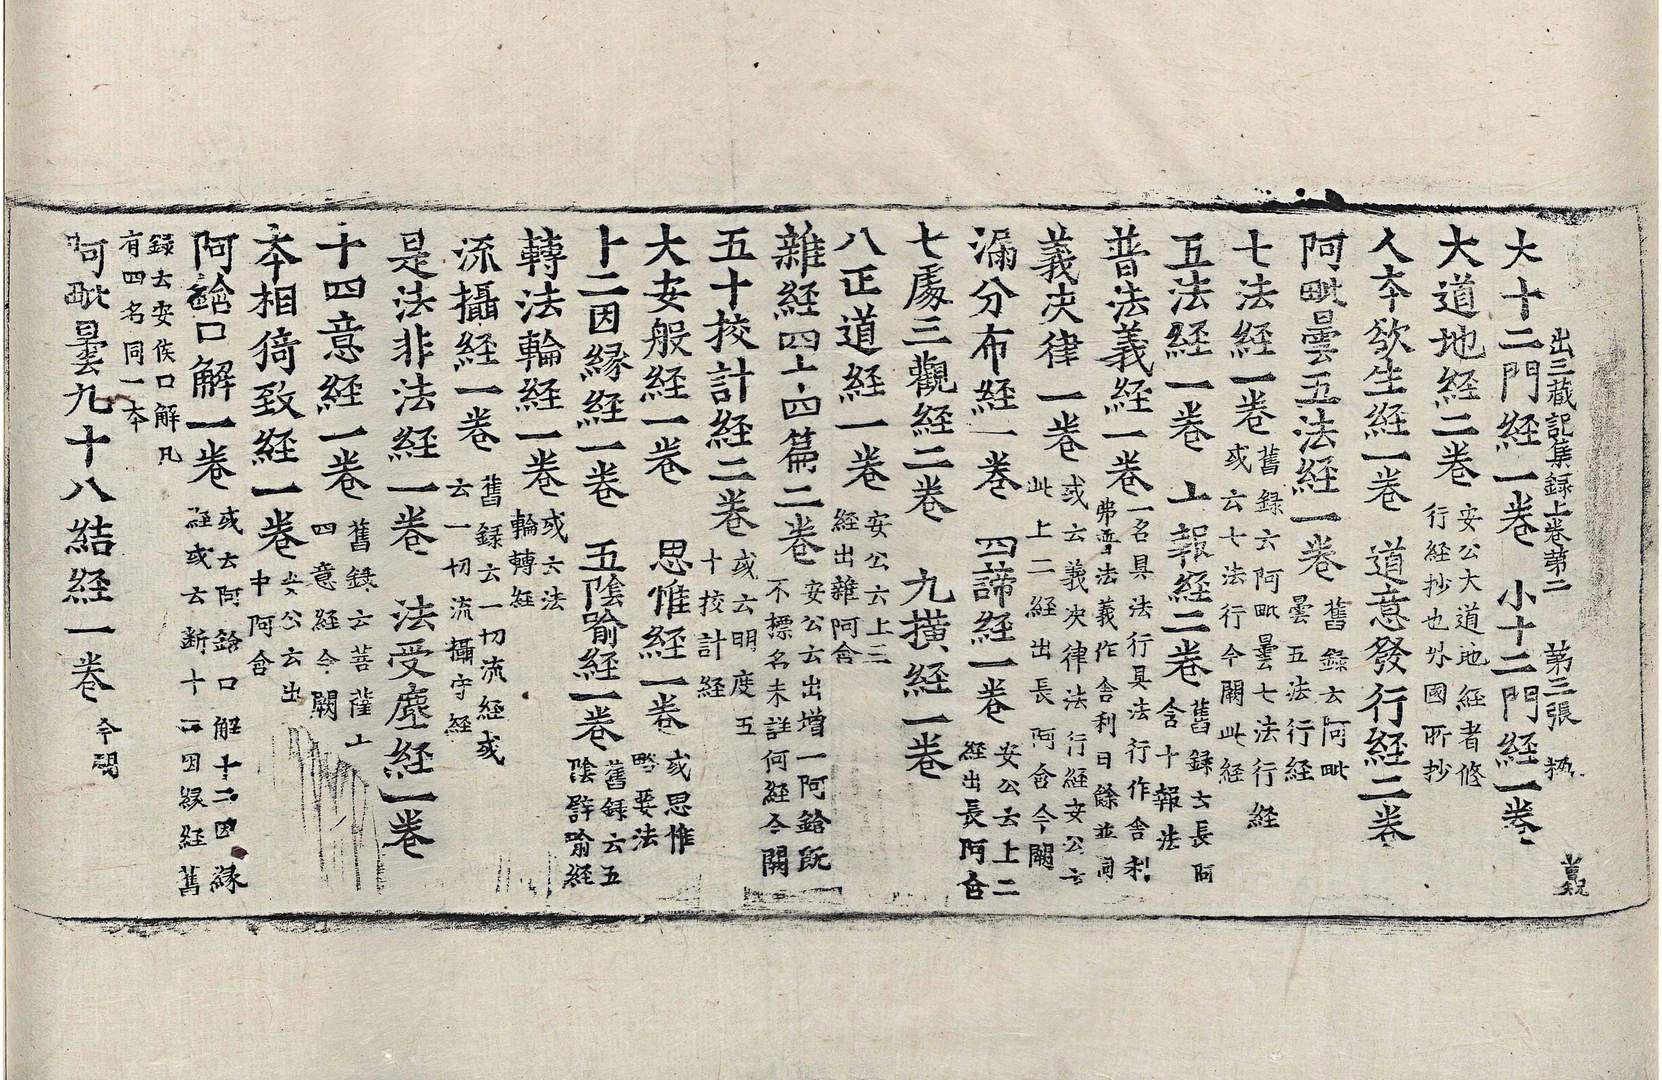 出三藏記集録上卷第二 第三張
大十二門經一卷 小十二門經一卷
大道地經二卷 安公大道地經者修行經抄也外國所抄
人本欲生經一卷 道意發行經二卷
阿毗曇五法經一卷 舊録云阿毗曇五法行經
七法經一卷 舊録云阿毗曇七法行經或云七法行今闕此經
五法經一卷 十報經二卷 舊録云長阿含十報法
普法義經一卷 一名具法行具法行作舍利弗普法義作舍利曰餘並同
義決律一卷 或云義決律法行經安公云此上二經出長阿含今闕
漏分布經一卷 四諦經一卷 安公云上二經出長阿含
七處三觀經二卷 九橫經一卷
八正道經一卷 安公云上三經出雜阿含
雜經四十四篇二卷 安公云出增一阿鋡既不標名未詳何經今闕
五十挍計經二卷 或云明度五十挍計經
大安般經一卷 思惟經一卷 或思惟略要法
十二因縁經一卷 五陰喻經一卷 舊録云五陰譬喻經
轉法輪經一卷 或云法輪轉經
流攝經一卷 舊録云一切流經或云一切流攝守經
是法非法經一卷 法受塵經一卷
十四意經一卷 舊録云菩薩十四意經今闕
本相猗致經一卷 安公云出中阿含
阿鋡口解一卷 或云阿鋡口解十二因縁經或云断十二因縁經舊
録云安侯口解凡有四名同一本
阿毗曇九十八結經一卷 今闕